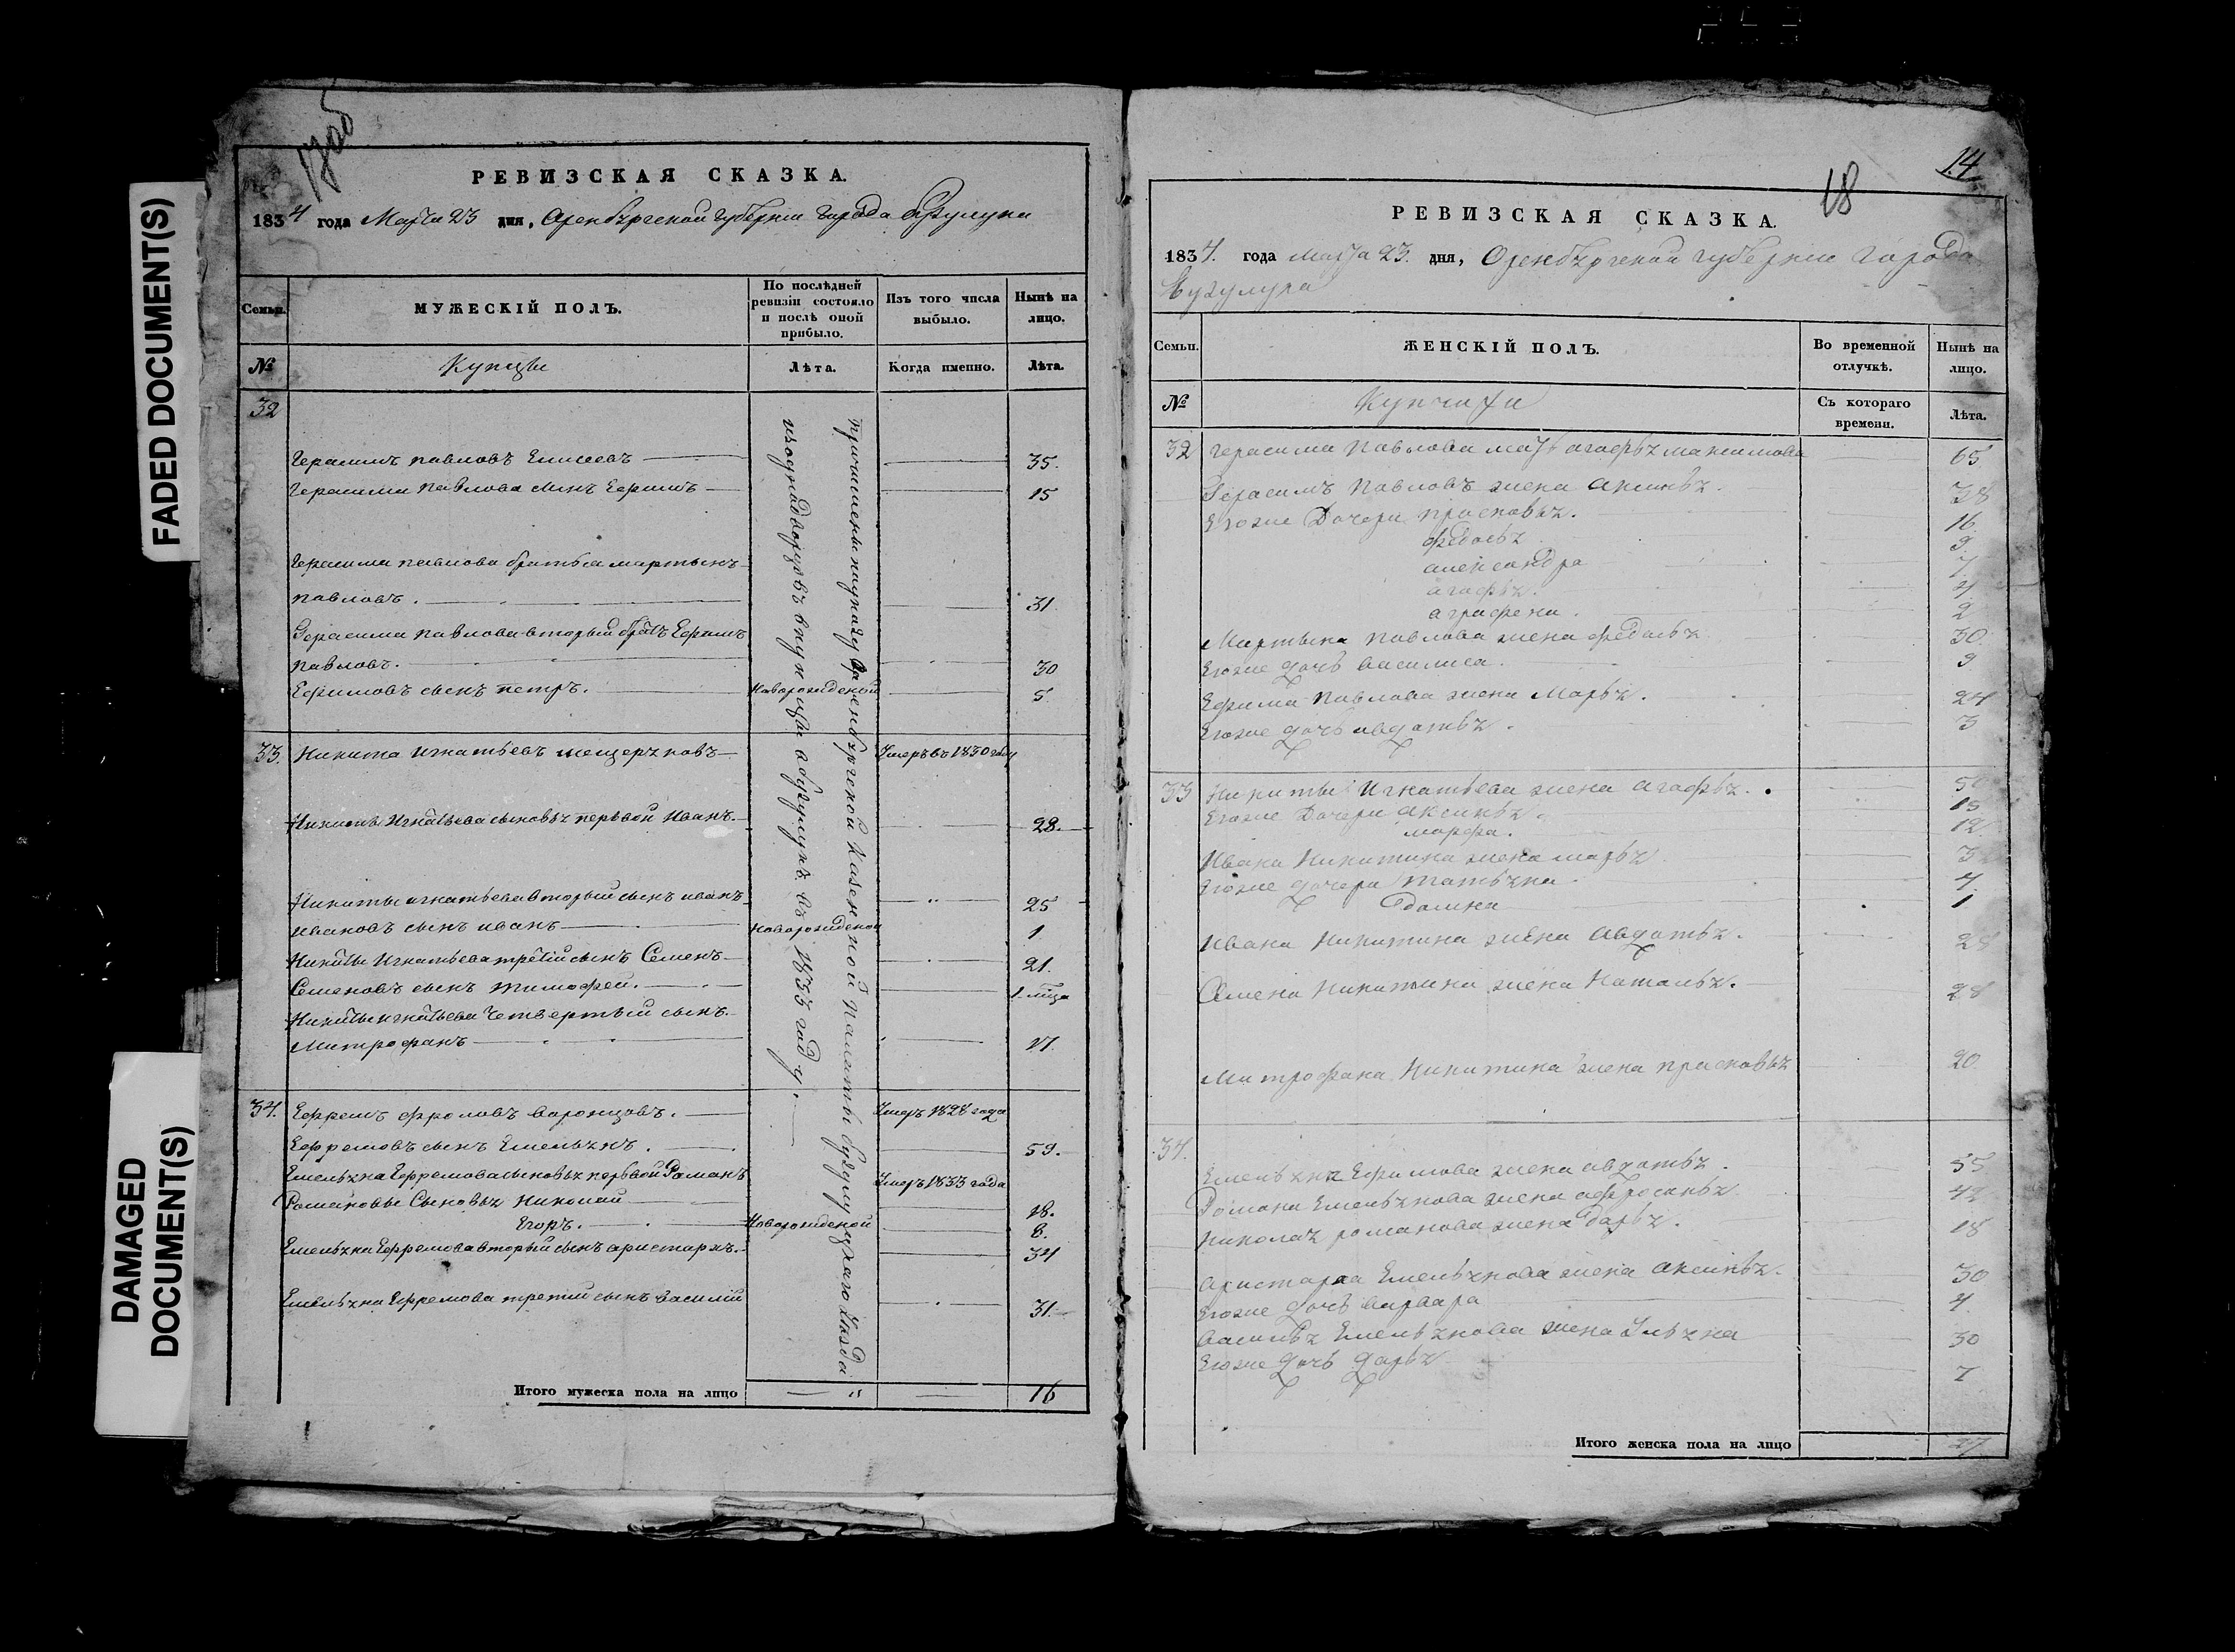 FADED DOCUMENT(S)
DAMAGED
DOCUMENT(S)
17об
РЕВИЗСКАЯ СКАЗКА.
1834 года Марта 23 дня, Оренбургской губернии города Бузулука
Семьи.
МУЖЕСКІЙ ПОЛЪ.
По послѣдней
ревизіи состояло
и послѣ оной
прибыло.
Изъ того числа
выбыло.
Нынѣ на
лицо.
№
Купцы
Лѣта.
Когда именно.
Лѣта.
32
Герасимъ павловъ Елисеевъ 35.
Герасима Павлова сынъ Ефимъ 15
Герасима павлова братья мартынъ
павловъ. 31
Герасима павлова вторый братъ Ефимъ
павловъ. 30
Ефимовъ сынъ петръ. Новорожденой 5
33. Никита Игнатьевъ мещеряковъ Умеръ въ 1830 году
Никиты Игнатьева сыновья первой Иванъ 28.
Никиты игнатьева вторый сынъ иванъ 25
ивановъ сынъ иванъ Новорожденой 1
Никиты Игнатьева третій сынъ Семенъ 21.
Семеновъ сынъ тимофей.
Никиты игнатьева Четвертый сынъ
Митрофанъ
34. Ефремъ фроловъ варонцовъ. Умеръ 1828 года
Ефремовъ сынъ Емельянъ. 59.
Емельяна Ефремова сыновья первой Романъ Умеръ 1833 года
Романовы Сыновья Николай 18.
Егоръ. Новорожденой 8.
Емельяна Ефремова вторый сынъ аристархъ. 34
Емельяна Ефремова третий сынъ василий 31.
изоднадворцовъ в купцы въ 1833 году.
причислены по указу Оренбургской Казенной Палаты
Итого мужеска пола на лицо 16
14
18
РЕВИЗСКАЯ СКАЗКА.
1834. года марта 23. дня, Оренбургской губернии города
Бузулука
Семьи.
ЖЕНСКІЙ ПОЛЪ.
Во временной
отлучкѣ.
Нынѣ на
лицо.
№
Съ котораго
времени.
Лѣта.
32 Герасима Павлова мать агафья максимова 65
Герасимъ Павловъ жена аксинья. 38
Егоже Дочери прасковья. 16
федосья 9
александра
агафья. 4
аграфена. 2
Мартына павлова жена федосья 30
Егоже дочь василиса. 9
Ефима Павлова жена Марья. 24
Егоже дочь авдотья. 3
33 Никиты Игнатьева жена агафья.
Егоже Дочери аксинья. 15
марфа. 12
Ивана Никитина жена марья
Егоже дочери татьяна 4
домина 1
Ивана Никитина жена авдотья. 28
Семена Никитина жена Наталья. 28
Митрофана Никитина жена прасковья 20
34. Емельяна Ефимова жена авдотья. 55
Романа Емельянова жена афросинья 42
Николая романова жена дарья. 18
аристарха Емельянова жена аксинья. 30
Егоже дочь варвара 4
василья Емельянова жена Ульяна 30
Егоже дочь дарья 7
Итого женска пола на лицо 27